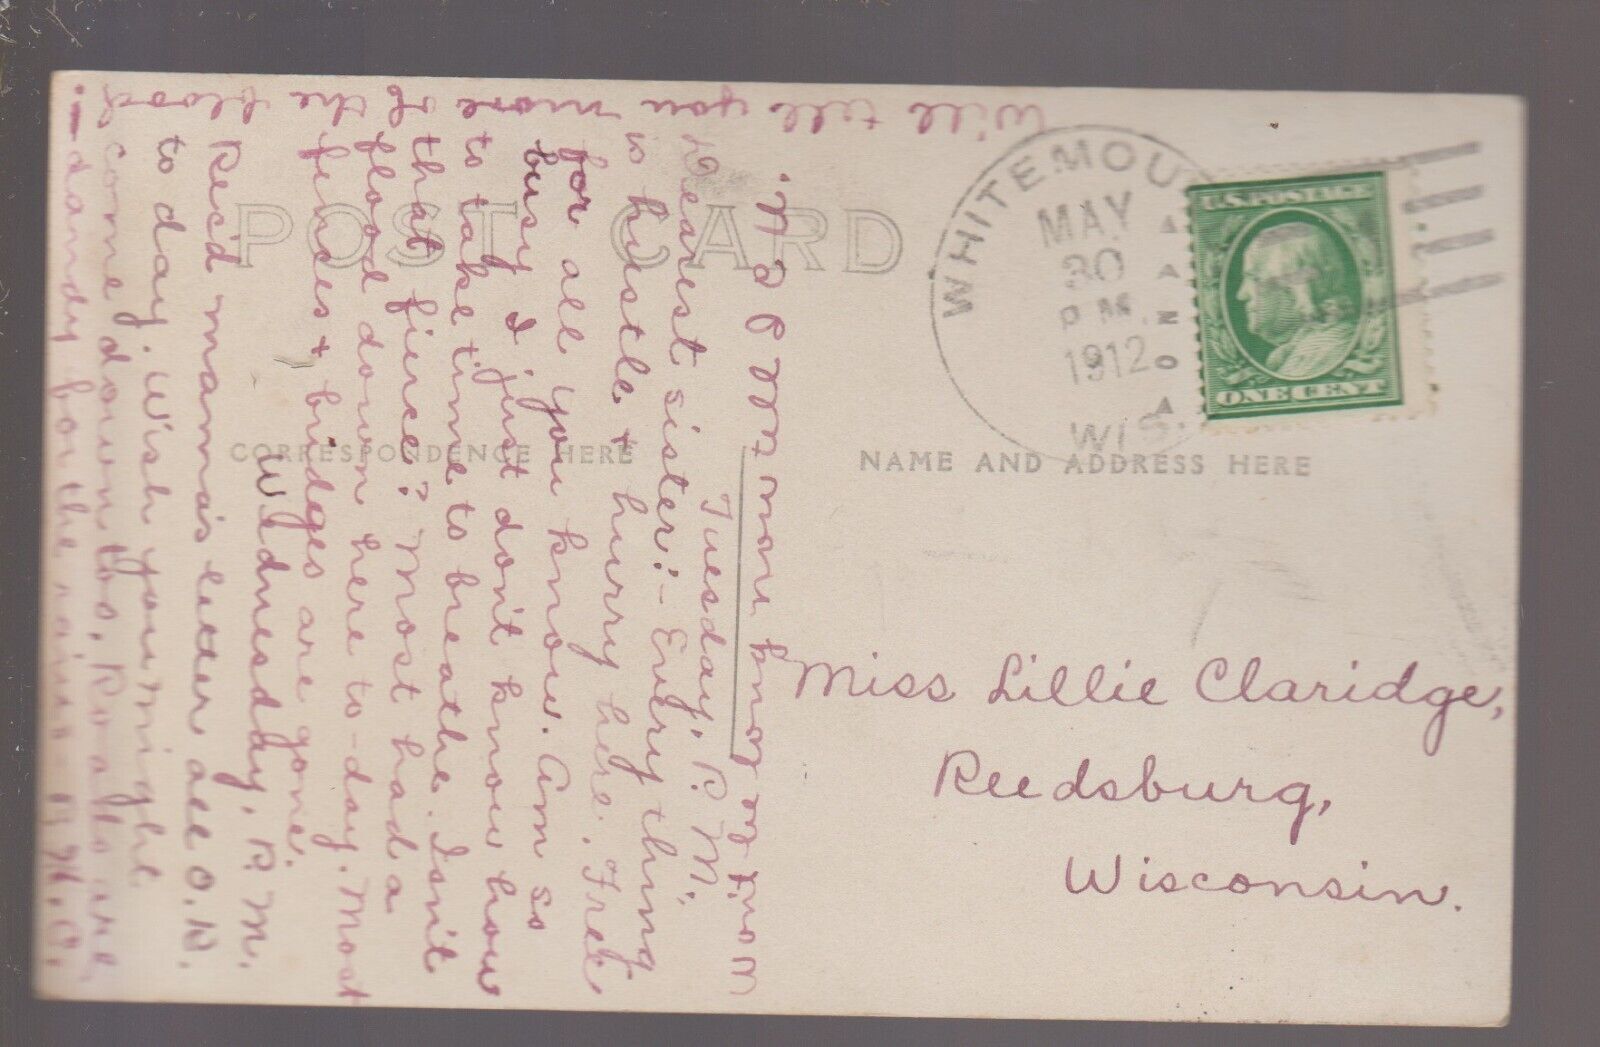 POST CARD
CORRESPONDENCE HERE
NAME AND ADDRESS HERE
WHITEMOU
MAY
30
P M.
1912
WIS.
U.S. POSTAGE
ONE CENT
Miss Lillie Claridge,
Reedsburg,
Wisconsin.
Tuesday, P. M.
Dearest sister:- Every thing
is hustle & hurry here. Fret
for all you know. Am so
busy I just don't know how
to take time to breathe. Isn't
that fierce? Most had a
flood down here to-day. Most
fences & bridges are gone.
Wednesday, P. M.
Rec'd mama's letter all O.K.
to day. Wish you might
come down too. Roads are
dandy for the rains
Will tell you more of the flood
won't be long now till